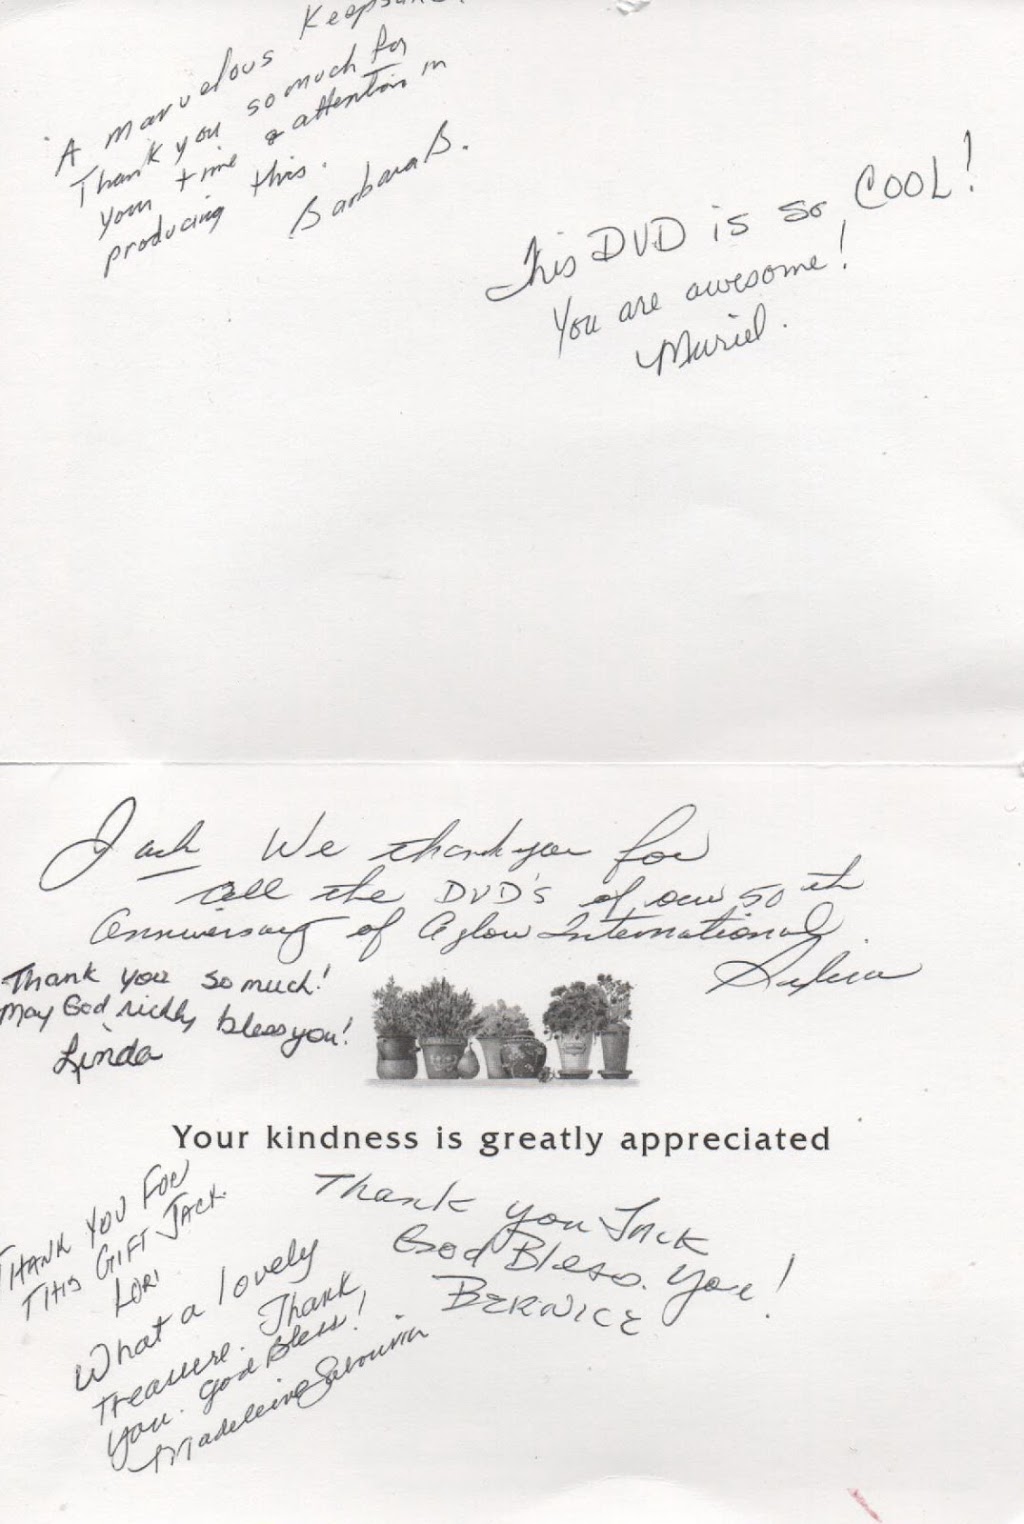 A marvelous Keepsake!
Thank you so much for
your time & attention in
producing this.
Barbara B.
This DVD is so COOL!
You are awesome!
Muriel.
Jack We thank you for
all the DVD's of our 50th
Anniversary of Aglow International.
Thank you so much!
May God richly bless you!
Linda
Your kindness is greatly appreciated
THANK YOU FOR
THIS GIFT JACK.
LORI
Thank you JACK
God Bless. You!
BERNICE
What a lovely
treasure. Thank
you. God Bless!
Madeleine